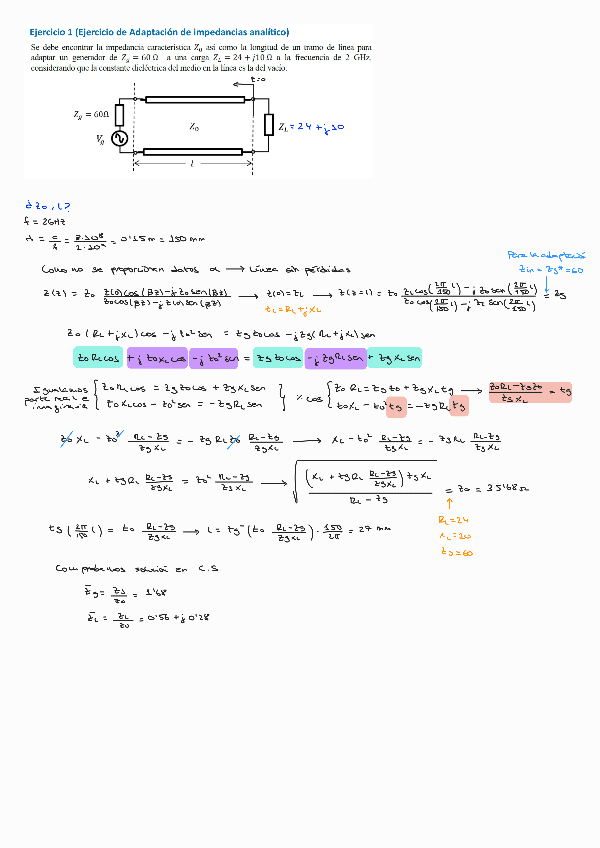 Ejercicio 1 (Ejercicio de Adaptación de impedancias analítico)
Se debe encontrar la impedancia característica Z₀ así como la longitud de un tramo de línea para
adaptar un generador de Z_g = 60 Ω a una carga Z_L = 24 + j10 Ω a la frecuencia de 2 GHz,
considerando que la constante dieléctrica del medio en la línea es la del vacío.
z=0
Z_g = 60Ω
Z₀
Z_L = 24 + j10
V_g
l
¿Z₀, l?
f = 2GHz
λ = c/f = 3·10⁸/2·10⁹ = 0'15 m = 150 mm
Para la adaptació
Zin = Zg* = 60
Como no se proporcionan datos α → Línea sin pérdidas
Z(z) = Z₀ (Z(0)cos(βz) - j Z₀ sen(βz))/(Z₀cos(βz) - j Z(0) sen(βz)) → Z(0) = Z_L → Z(z=l) = Z₀ (Z_L cos(2π/150 l) - j Z₀ sen(2π/150 l))/(Z₀ cos(2π/150 l) - j Z_L sen(2π/150 l)) = Zg
Z_L = R_L + jX_L
Z₀ (R_L + jX_L) cos - j Z₀² sen = Zg Z₀ cos - j Zg (R_L + jX_L) sen
Z₀ R_L cos + j Z₀ X_L cos - j Z₀² sen = Zg Z₀ cos - j Zg R_L sen + Zg X_L sen
Igualamos parte real e imaginaria { Z₀ R_L cos = Zg Z₀ cos + Zg X_L sen } × cos { Z₀ R_L = Zg Z₀ + Zg X_L tg → (Z₀R_L - ZgZ₀)/(Zg X_L) = tg
Z₀ X_L cos - Z₀² sen = - Zg R_L sen
Z₀ X_L - Z₀² tg = - Zg R_L tg
Z₀ X_L - Z₀² (R_L - Zg)/(Zg X_L) = - Zg R_L Z₀ (R_L - Zg)/(Zg X_L) → X_L - Z₀² (R_L - Zg)/(Zg X_L) = - Zg R_L (R_L - Zg)/(Zg X_L)
X_L + Zg R_L (R_L - Zg)/(Zg X_L) = Z₀² (R_L - Zg)/(Zg X_L) → √((X_L + Zg R_L (R_L - Zg)/(Zg X_L)) Zg X_L/(R_L - Zg)) = Z₀ = 35'68 Ω
R_L = 24
Zg = 60
tg (2π/150 l) = Z₀ (R_L - Zg)/(Zg X_L) → l = tg⁻ (Z₀ (R_L - Zg)/(Zg X_L)) · 150/2π = 27 mm
Comprobamos solución en C.S
Z̄g = Zg/Z₀ = 1'68
Z̄_L = Z_L/Z₀ = 0'56 + j 0'28